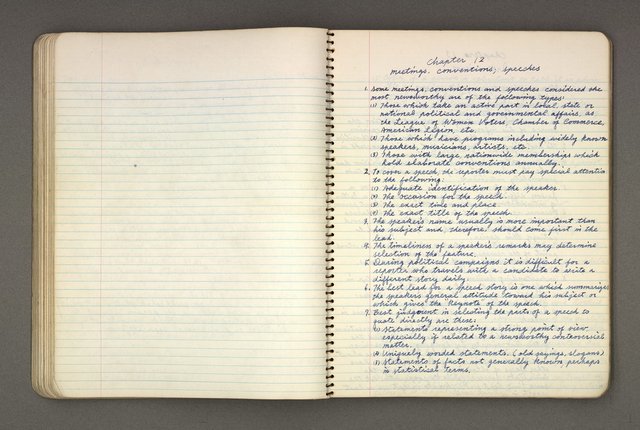 Chapter 12
meetings, conventions, speeches
1. Some meetings, conventions and speeches considered the
most newsworthy are of the following types:
(1) Those which take an active part in local, state or
national political and governmental affairs, as
the League of Women Voters, Chamber of Commerce,
American Legion, etc.
(2) Those which have programs including widely known
speakers, musicians, artists, etc.
(3) Those with large, nationwide memberships which
hold elaborate conventions annually.
2. To cover a speech, the reporter must pay special attentio
to the following:
(1) Adequate identification of the speaker.
(2) The occasion for the speech.
(3) The exact time and place.
(4) The exact title of the speech.
3. The speaker's name usually is more important than
his subject and, therefore, should come first in the
lead.
4. The timeliness of a speaker's remarks may determine
selection of the feature.
5. During political campaigns it is difficult for a
reporter who travels with a candidate to write a
different story daily.
6. The best lead for a speech story is one which summarizes
the speakers general attitude toward his subject or
which gives the Keynote of the speech.
7. Best judgment in selecting the parts of a speech to
quote directly are these:
(1) Statements representing a strong point of view
especially if related to a newsworthy controversial
matter.
(2) Uniquely worded statements. (old sayings, slogans)
(3) Statements of facts not generally known perhaps
in statistical terms.